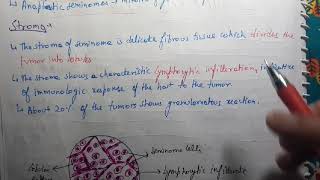 ↳ Anaplastic seminomas -
Stroma -
↳ The stroma of seminoma is delicate fibrous tissue which divides the
tumor into lobules
↳ The stroma shows a characteristic lymphocytic infiltration,
of immunologic response of the host to the tumor.
↳ About 20% of the tumors shows granulomatous reaction.
Seminoma cells
Lymphocytic infiltrate